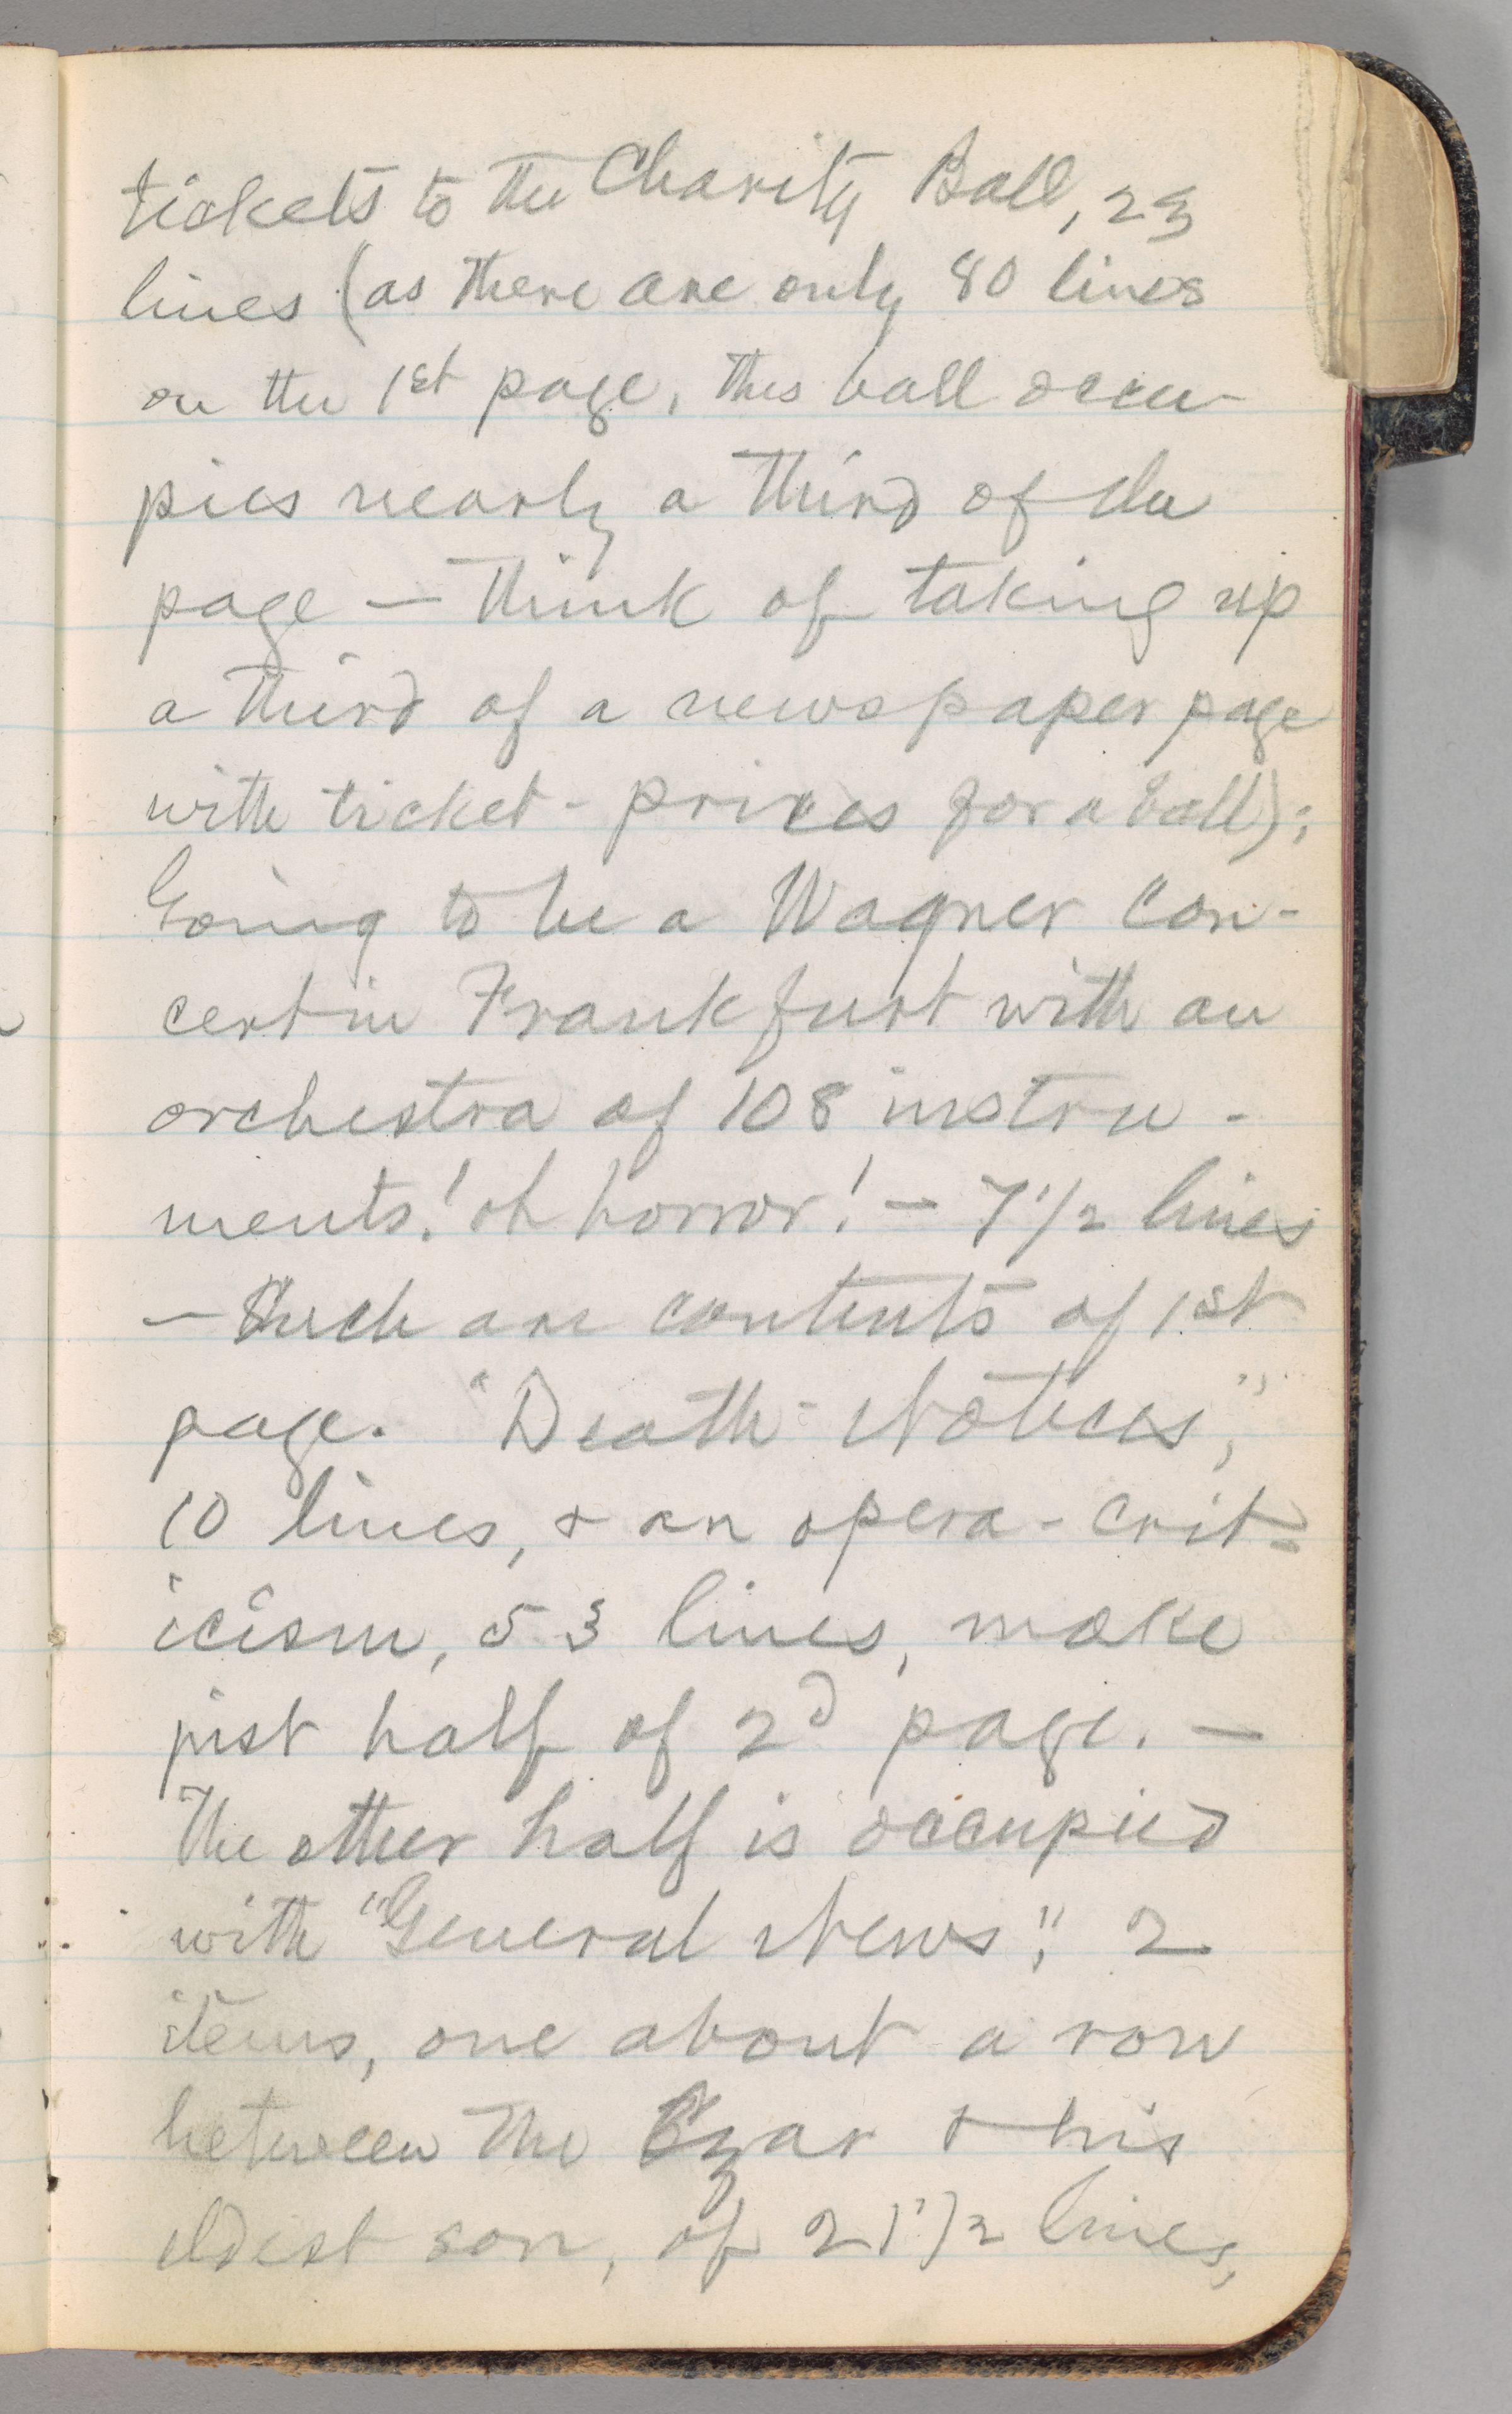 tickets to the Charity Ball, 23
lines (as there are only 80 lines
on the 1st page, this ball occu-
pies nearly a third of the
page — think of taking up
a third of a newspaper page
with ticket-prices for a ball);
Going to be a Wagner con-
cert in Frankfurt with an
orchestra of 108 instru-
ments! oh horror! — 7 1/2 lines
— Such are contents of 1st
page. "Death-Notices,"
10 lines, & an opera-crit-
icism, 53 lines, make
just half of 2d page. —
The other half is occupied
with "General News"; 2
items, one about a row
between the Czar & his
eldest son, of 21 1/2 lines,